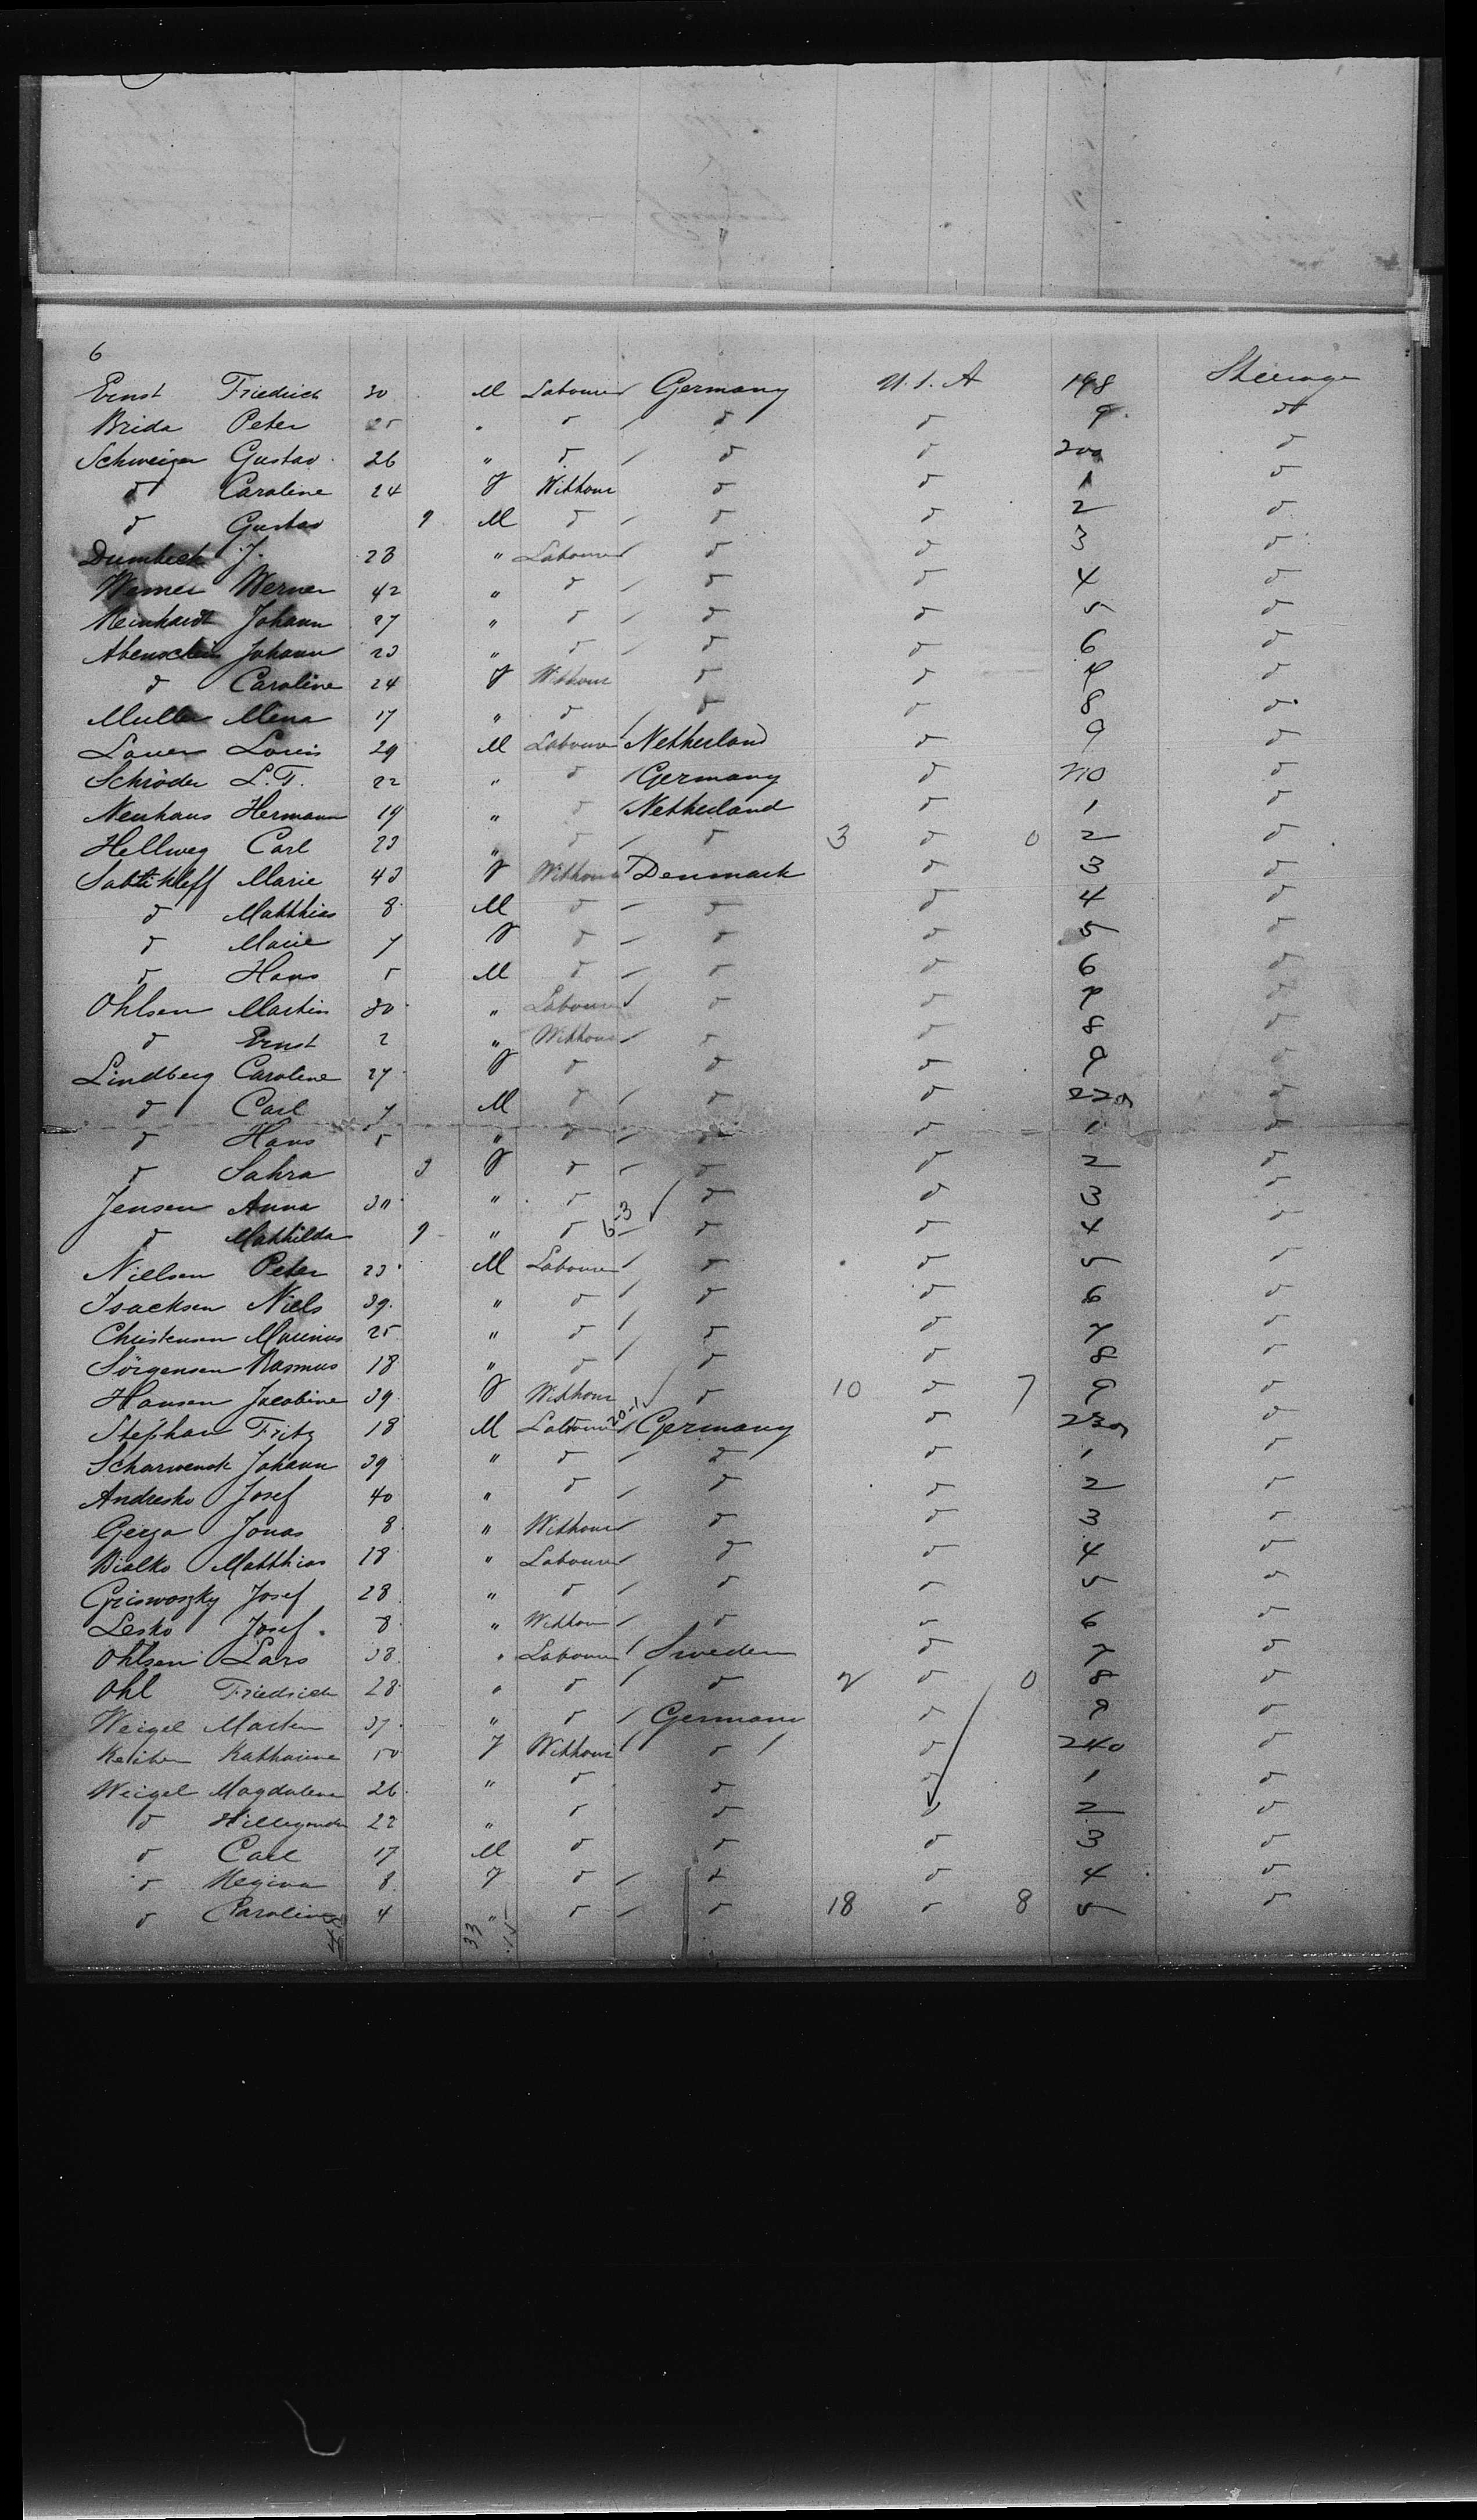 6
Ernst Friedrich 30 M Labourer Germany U.S.A 198 Steerage
Brida Peter 25 " d d d 9 d
Schweizer Gustav 26 " d d d 200 d
d Caroline 24 F Without d d 1 d
d Gustav 9 M d d d 2 d
J. 28 " Labourer d d 3 d
Werner Werner 42 " d d d 4 d
Reinhardt Johann 27 " d d d 5 d
Johann 23 " d d d 6 d
d Caroline 24 F Without d d 7 d
Muller Mena 17 " d d d 8 d
Lauer Louis 29 M Labourer Netherland d 9 d
Schröder L.T. 22 " d Germany d 210 d
Neuhaus Hermann 19 " d Netherland d 1 d
Hellweg Carl 23 " d d 3 d 0 2 d
Marie 43 F Without Denmark d 3 d
d Matthias 8 M d d d 4 d
d Marie 7 F d d d 5 d
d Hans 5 M d d d 6 d
Ohlsen Martin 30 " Labourer d d 7 d
d Ernst 2 " Without d d 8 d
Lindberg Caroline 27 F d d d 9 d
d Carl 7 M d d d 220 d
d Hans 5 " d d d 1 d
d Sahra 3 F d d d 2 d
Jensen Anna 30 " d d d 3 d
d Mathilda 9 " d 6-3 d d 4 d
Nielsen Peter 23 M Labourer d d 5 d
Isacksen Niels 39 " d d d 6 d
Christensen Marinus 25 " d d d 7 d
Sörgensen Rasmus 18 " d d d 8 d
Hansen Jacobine 39 F Without d 10 d 7 9 d
Stephan Fritz 18 M Labourer 20-1 Germany d 230 d
Scharwenck Johann 39 " d d d 1 d
Andresko Josef 40 " d d d 2 d
Gerja Jonas 8 " Without d d 3 d
Bialko Matthias 18 " Labourer d d 4 d
Griswoszky Josef 28 " d d d 5 d
Lesko Josef 8 " Without d d 6 d
Ohlsen Lars 38 " Labourer Sweden d 7 d
Ohl Friedrich 28 " d d 2 d 0 8 d
Weigel Martin 37 " d Germany d 9 d
Katharine 50 F Without d d 240 d
Weigel Magdalena 26 " d d d 1 d
d 22 " d d d 2 d
d Carl 17 M d d d 3 d
d Regina 8 F d d d 4 d
d Caroline 4 " d d 18 d 8 5 d
33 15